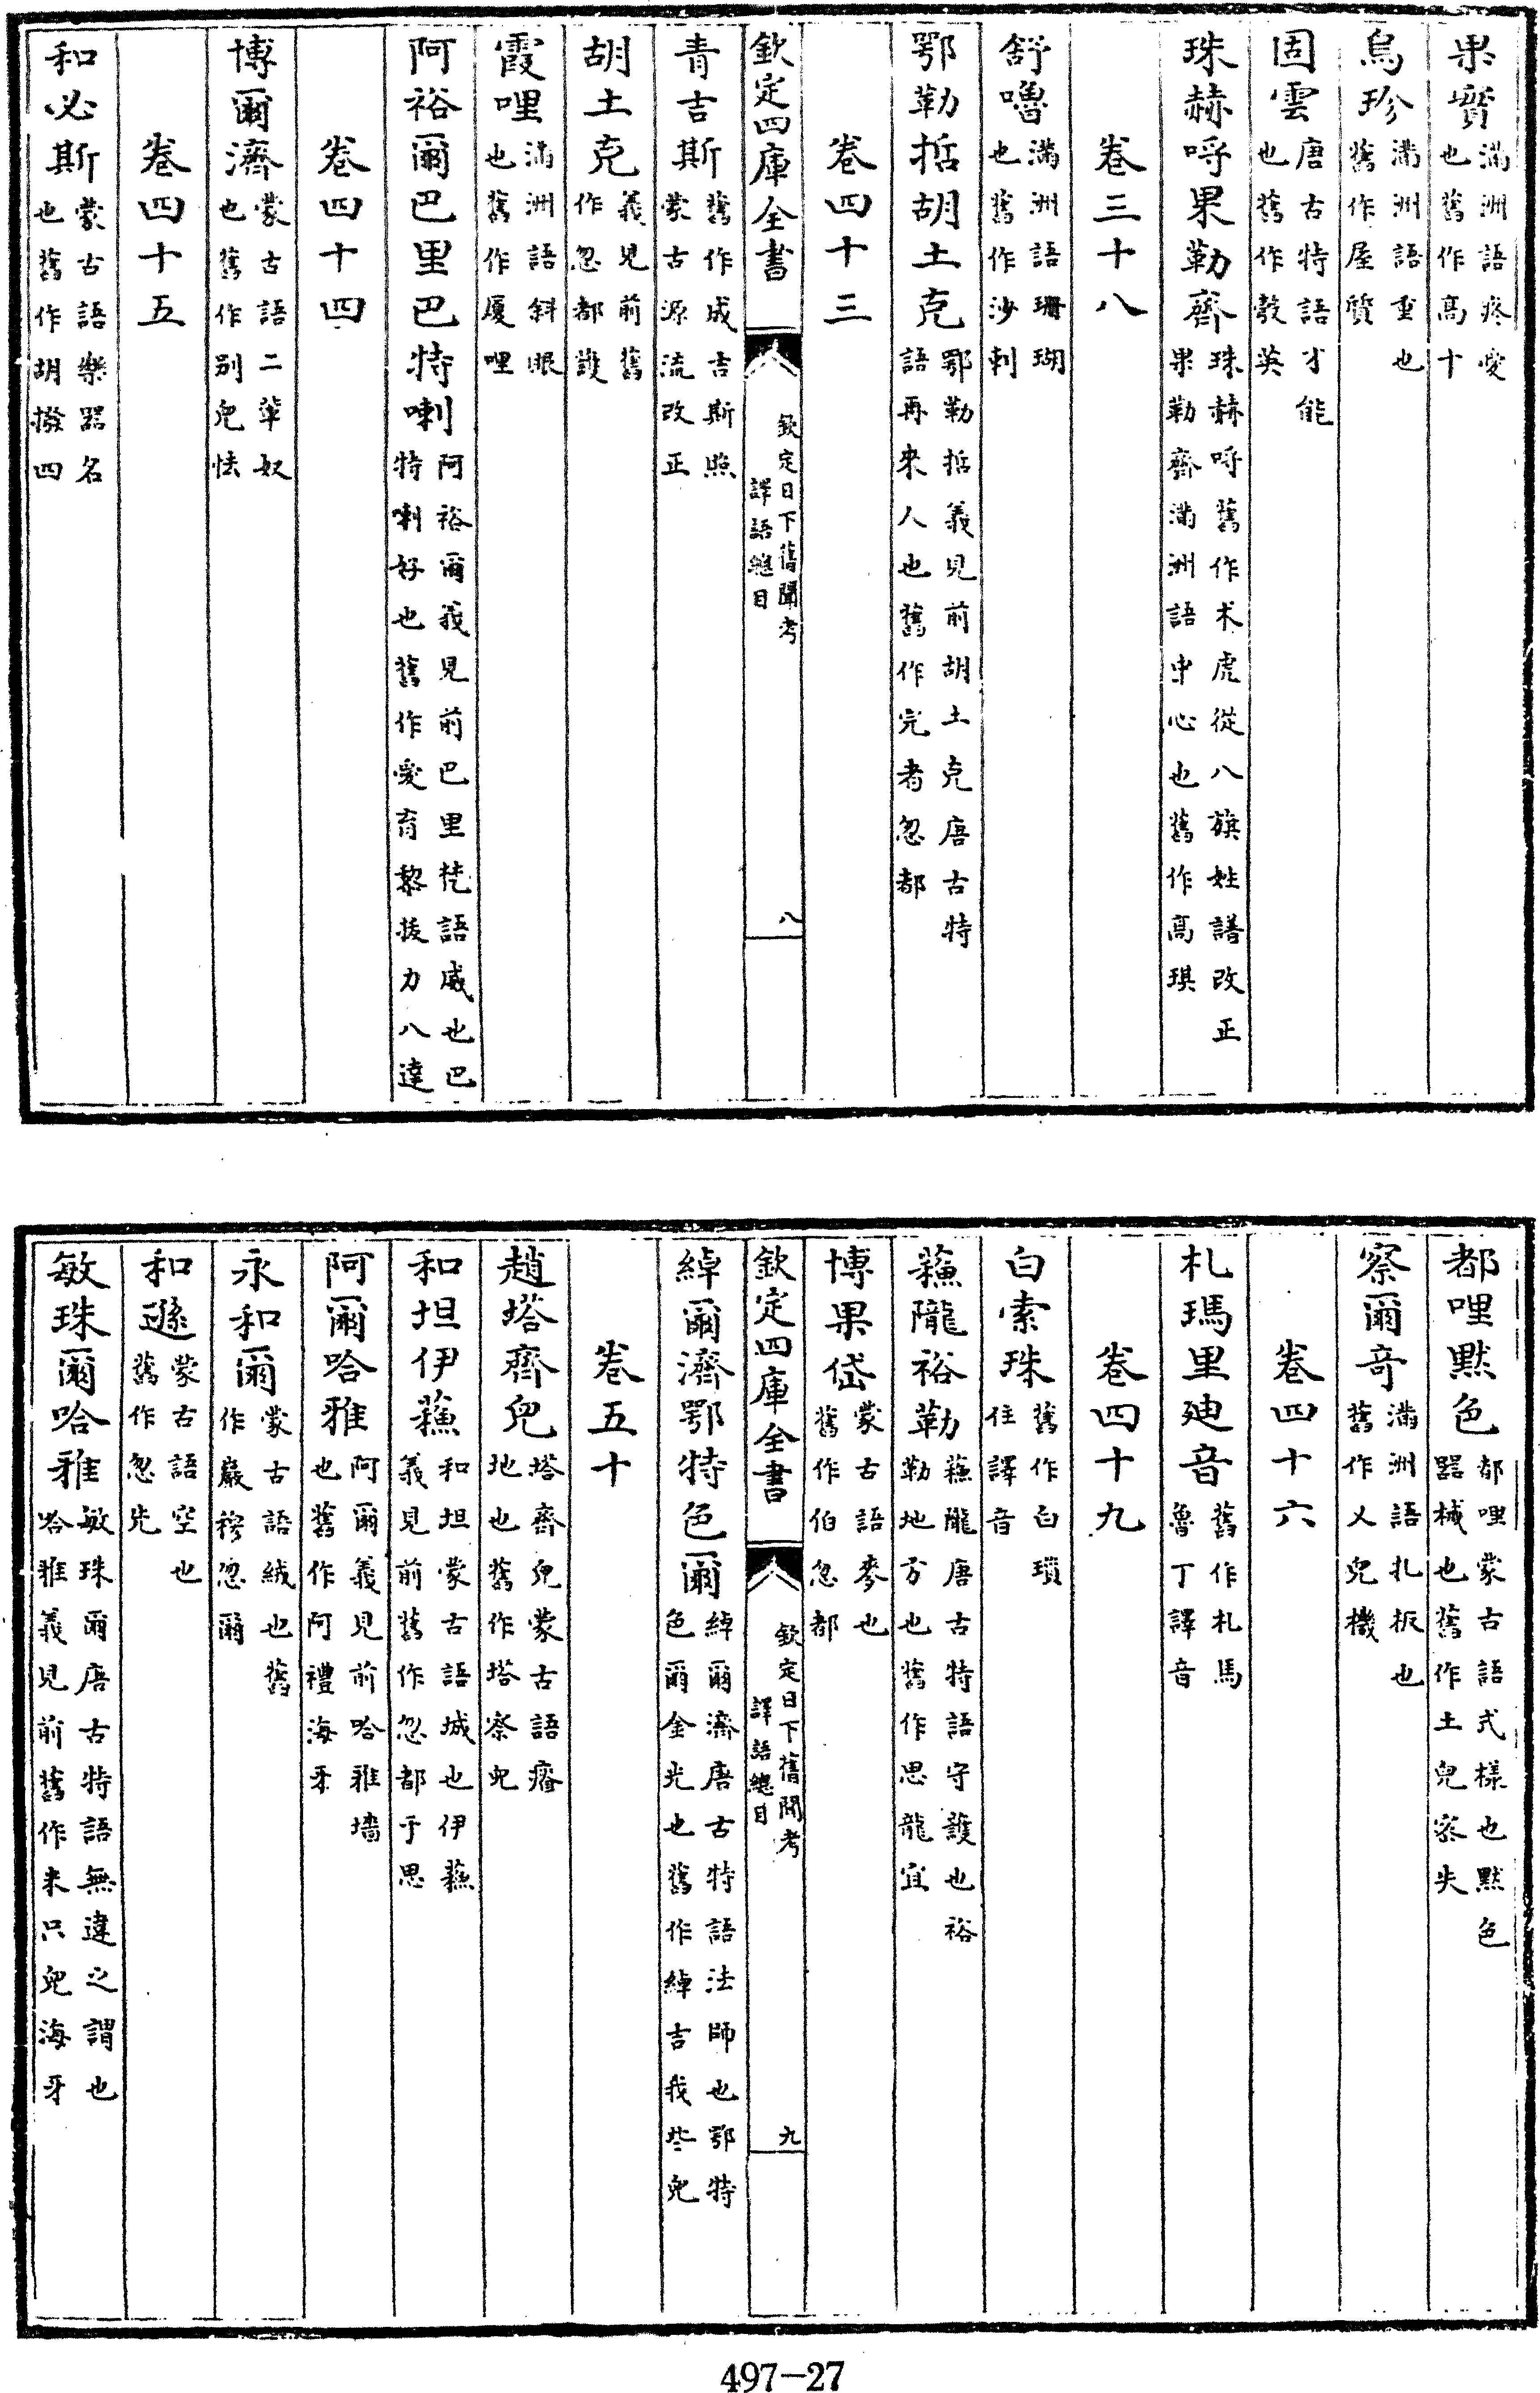 果實滿洲語疼愛也舊作高十
烏珍滿洲語重也舊作屋質
固雲唐古特語才能也舊作彀英
珠赫哷果勒齊珠赫哷舊作术虎從八旗姓譜改正果勒齊滿洲語中心也舊作高琪
卷三十八
舒嚕滿洲語珊瑚也舊作沙剌
鄂勒哲胡土克鄂勒哲義見前胡土克唐古特語再來人也舊作完者忽都
卷四十三
欽定四庫全書 欽定日下舊聞考譯語總目 八
青吉斯舊作成吉斯照蒙古源流改正
胡土克義見前舊作忽都護
霞哩滿洲語斜眼也舊作廈哩
阿裕爾巴里巴特喇阿裕爾義見前巴里梵語威也巴特喇好也舊作愛育黎拔力八達
卷四十四
博爾濟蒙古語二輩奴也舊作別兒怯
卷四十五
和必斯蒙古語樂器名也舊作胡撥四
都哩默色都哩蒙古語式樣也默色器械也舊作土兒宻失
察爾奇滿洲語扎板也舊作乂兒機
卷四十六
札瑪里廸音舊作札馬魯丁譯音
卷四十九
白索珠舊作白瑣住譯音
蘓隴裕勒蘓隴唐古特語守護也裕勒地方也舊作思龍宜
博果岱蒙古語麥也舊作伯忽都
欽定四庫全書 欽定日下舊聞考譯語總目 九
綽爾濟鄂特色爾綽爾濟唐古特語法師也鄂特色爾金光也舊作綽吉我些兒
卷五十
趙塔齊兒塔齊兒蒙古語瘠地也舊作塔察兒
和坦伊蘓和坦蒙古語城也伊蘓義見前舊作忽都于思
阿爾哈雅阿爾義見前哈雅墻也舊作阿禮海牙
永和爾蒙古語絨也舊作巖穆忽爾
和遜蒙古語空也舊作忽先
敏珠爾哈雅敏珠爾唐古特語無違之謂也哈雅義見前舊作米只兒海牙
497-27